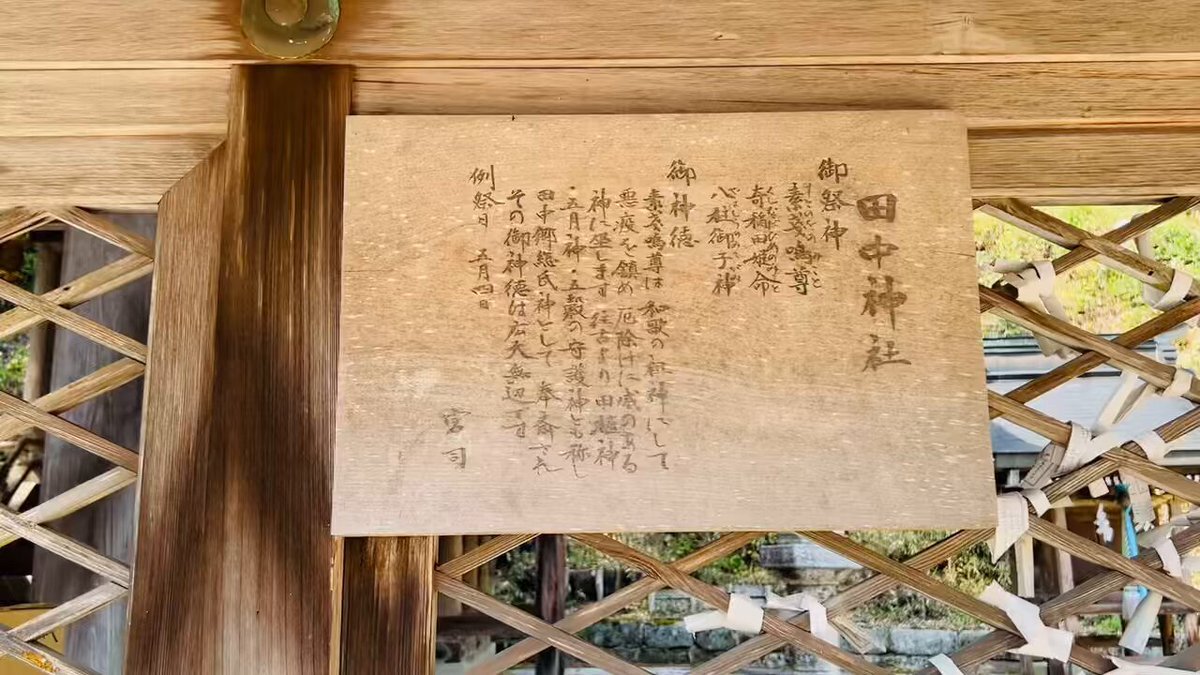 田中神社
御祭神
素戔鳴尊
奇稲田姫命
八柱御子神
御神徳
素戔鳴尊は 和歌の祖神にして
悪疫を鎮め 厄除けに威のある
神に坐します 往古より 田植神
・五月神・五穀の守護神とも称し
田中郷総氏神として 奉斎され
その御神徳は広大無辺です
例祭日 五月四日
宮司